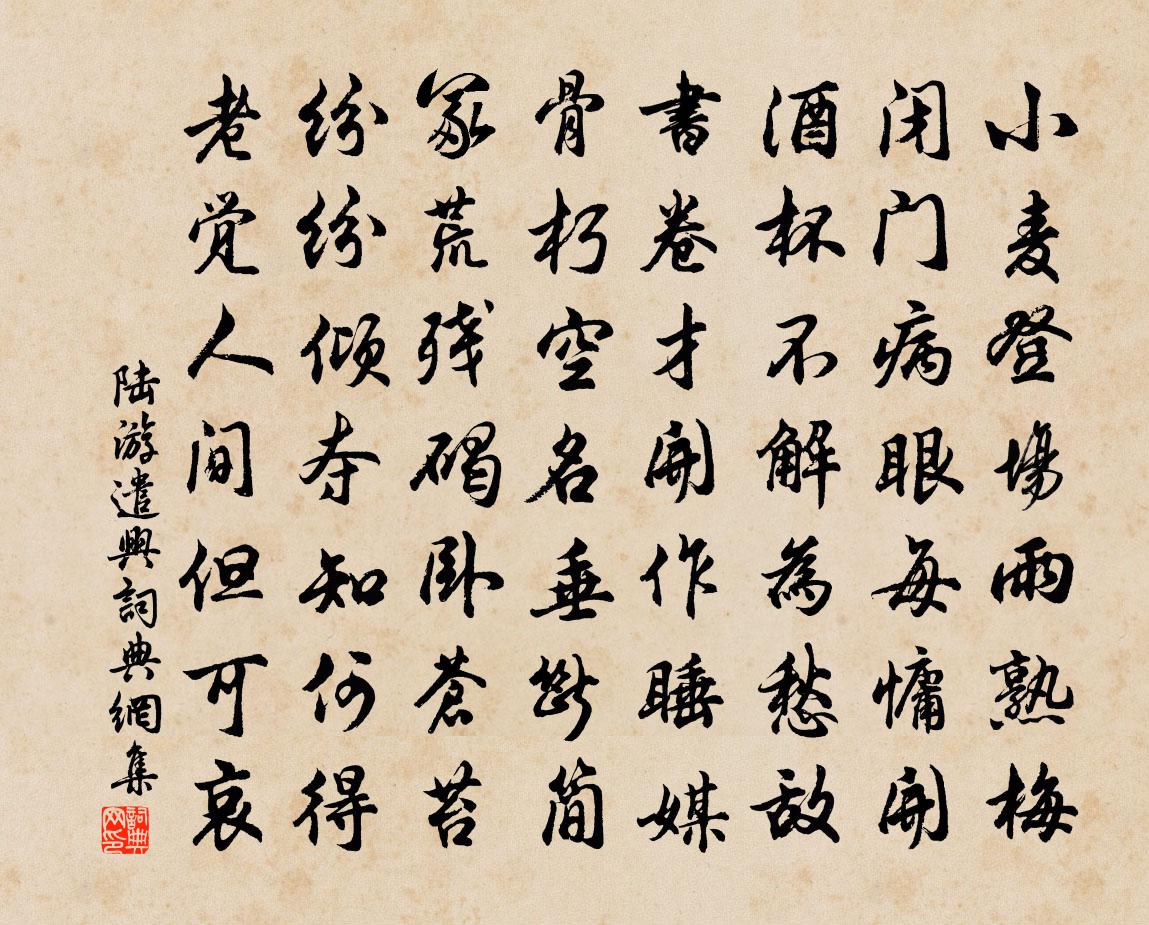 小麦登場雨熟梅
闭门病眼每慵開
酒杯不解為愁敌
書卷才開作睡媒
骨朽空名垂断简
冢荒残碣卧苍苔
纷纷倾夺知何得
老觉人间但可哀
陆游遣興詞典網集
詞典网印